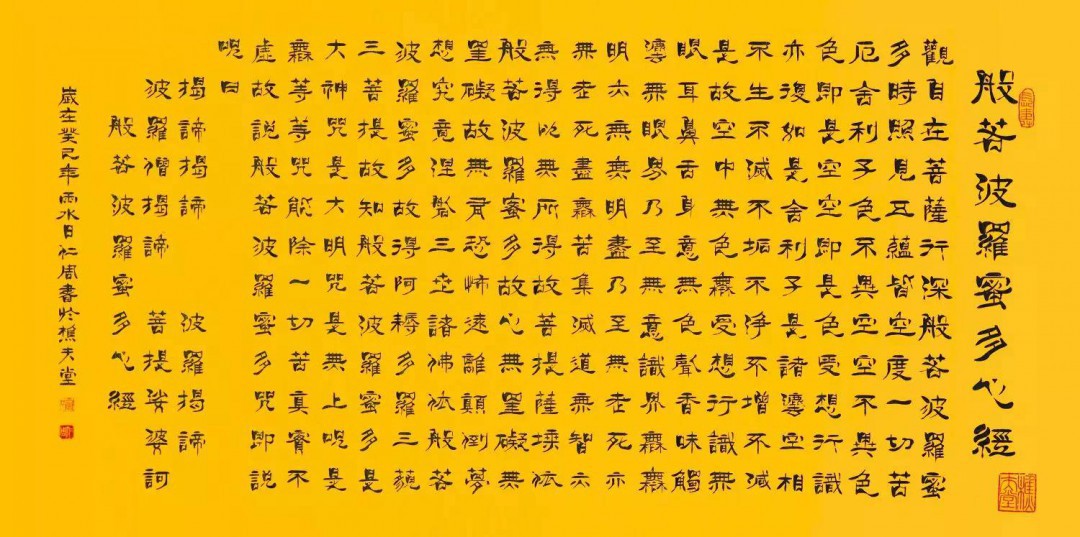 般若波羅蜜多心經
觀自在菩薩行深般若波羅蜜
多時照見五蘊皆空度一切苦
厄舍利子色不異空空不異色
色即是空空即是色受想行識
亦復如是舍利子是諸灋空相
不生不滅不垢不淨不增不減
是故空中無色無受想行識無
眼耳鼻舌身意無色聲香味觸
灋無眼界乃至無意識界無無
明亦無無明盡乃至無老死亦
無老死盡無苦集滅道無智亦
無得以無所得故菩提薩埵依
般若波羅蜜多故心無罣礙無
罣礙故無有恐怖遠離顛倒夢
想究竟涅槃三世諸佛依般若
波羅蜜多故得阿耨多羅三藐
三菩提故知般若波羅蜜多是
大神咒是大明咒是無上呪是
無等等咒能除一切苦真實不
虛故說般若波羅蜜多咒即說
呪曰
揭諦揭諦 波羅揭諦
波羅僧揭諦 菩提娑婆訶
般若波羅蜜多心經
歲在癸巳年雨水日仁周書於樵夫堂